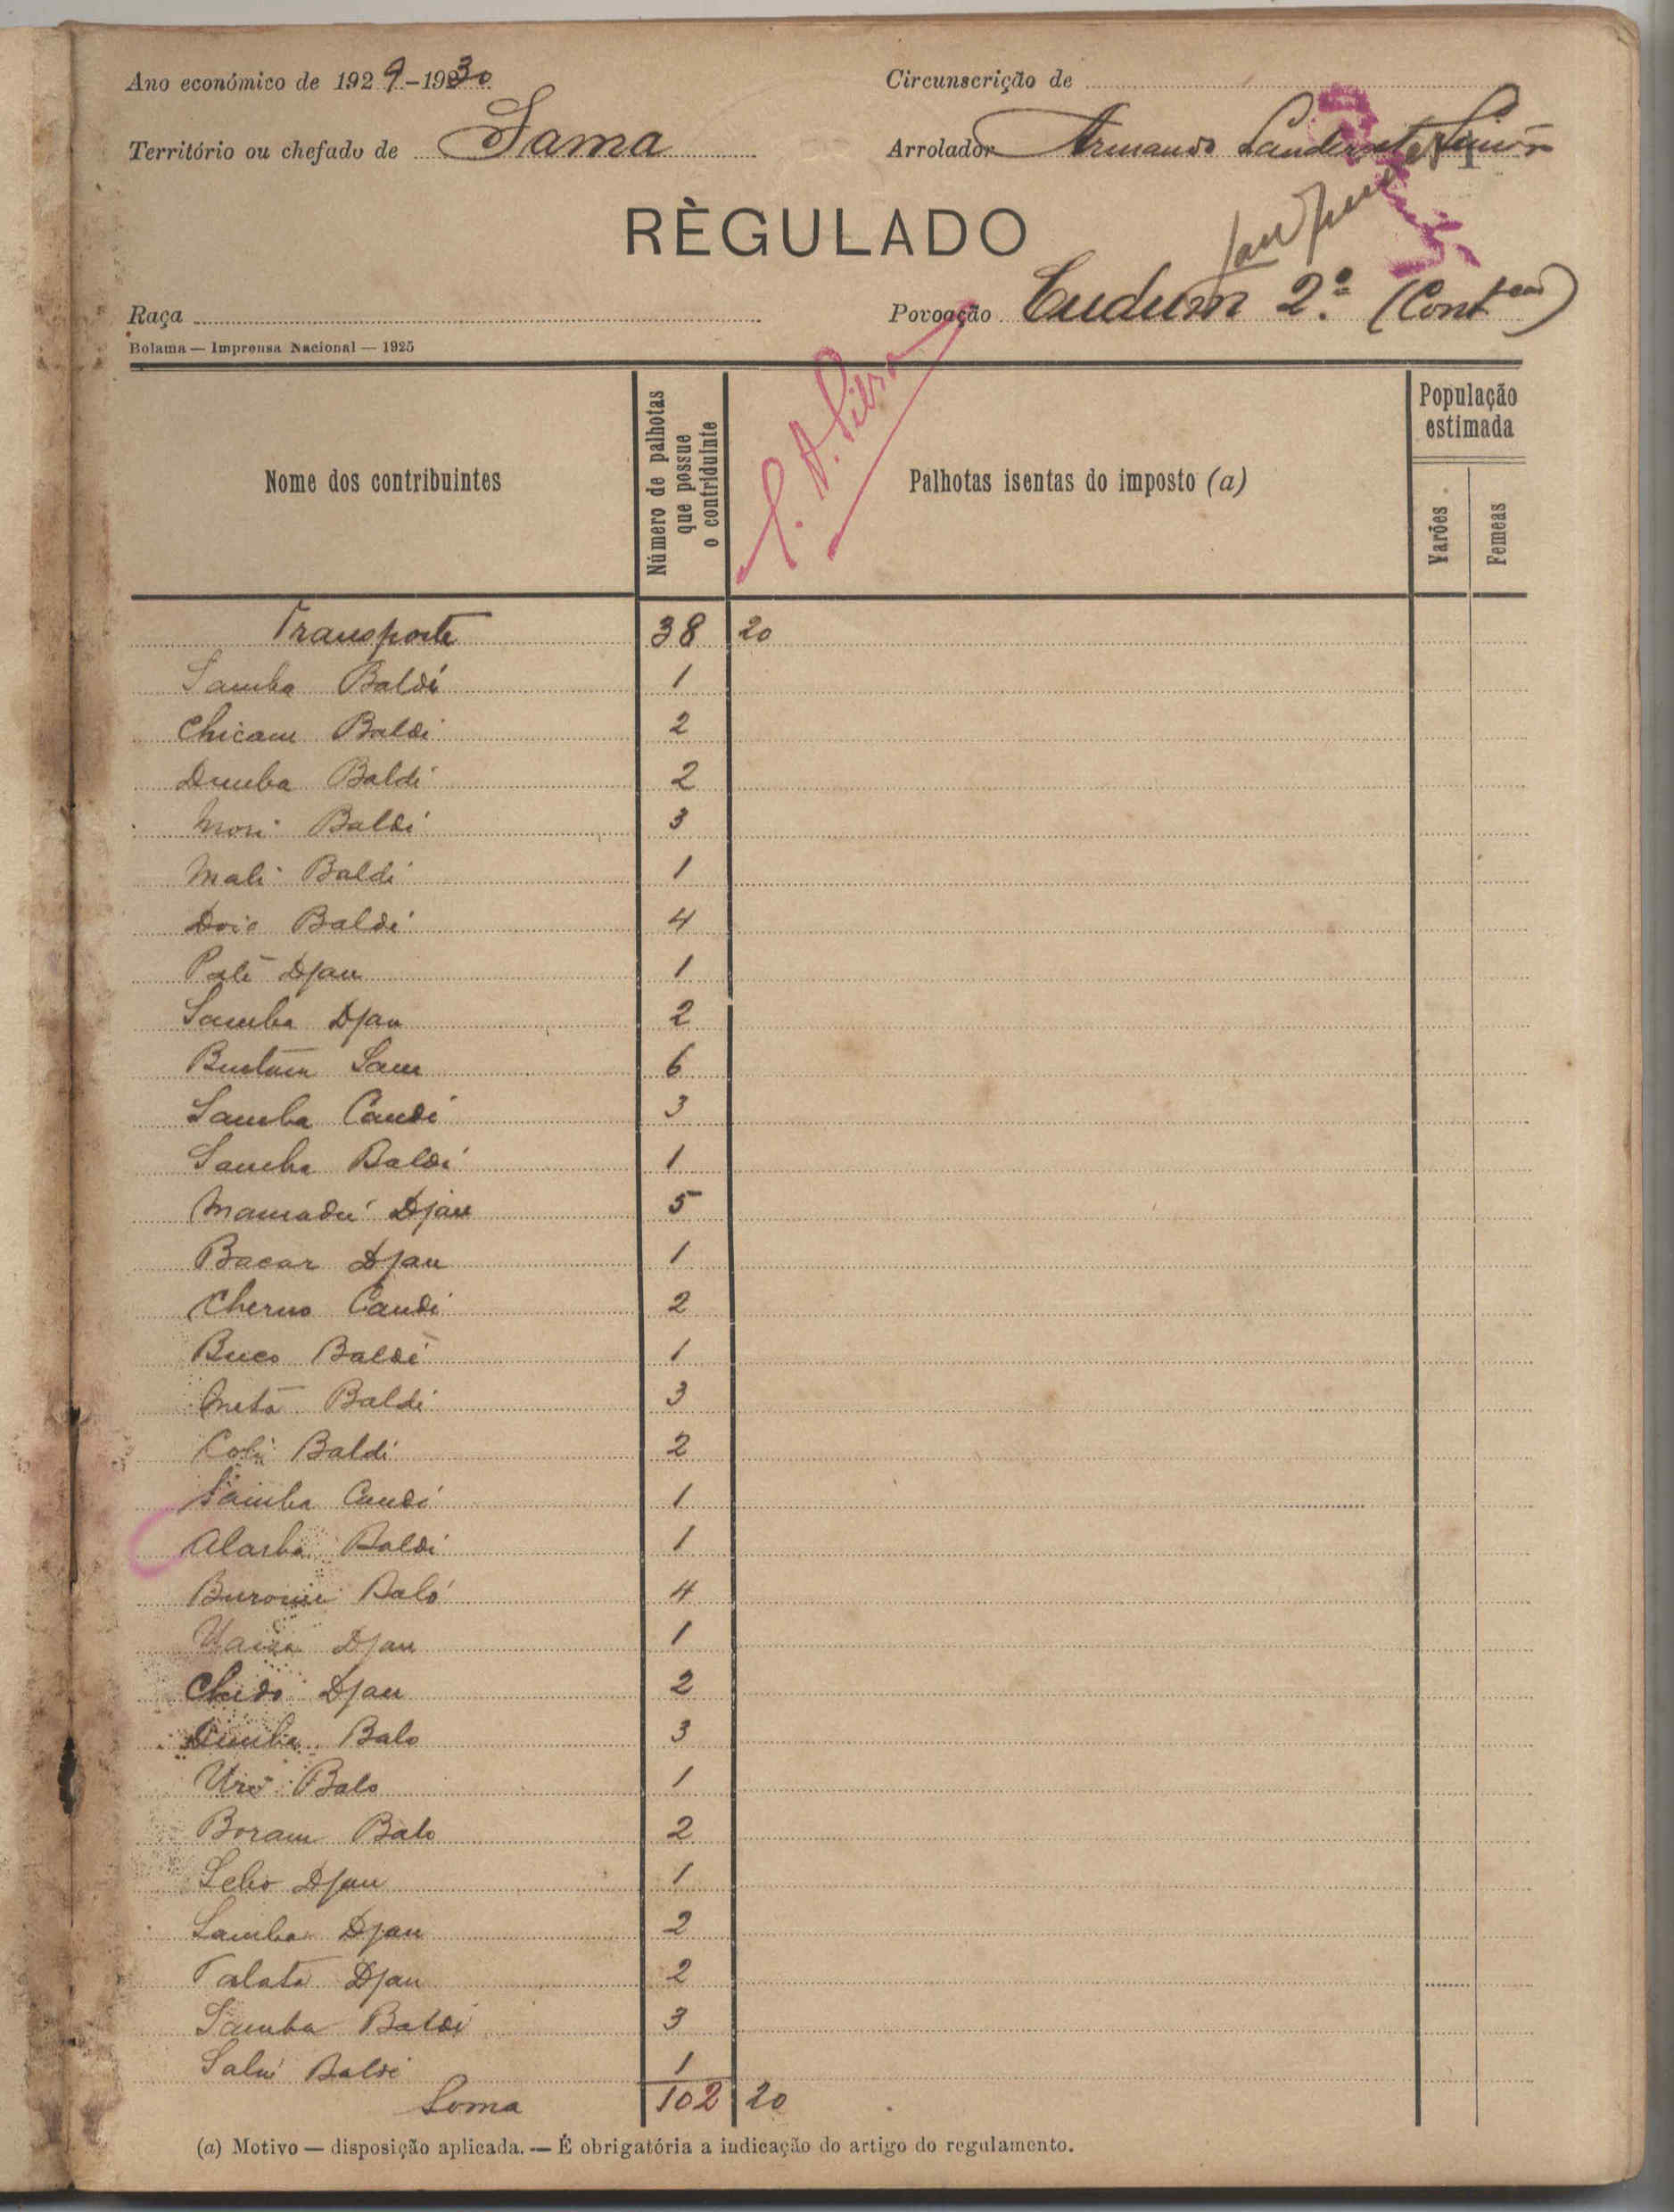 Ano económico de 1929-1930
Circunscrição de
Território ou chefado de Sama
Arrolador Armando
RÈGULADO
Raça
Povoação Cudum 2º (Cont)
Bolama — Imprensa Nacional — 1925
Nome dos contribuintes
Número de palhotas que possue o contriduinte
Palhotas isentas do imposto (a)
População estimada
Varões
Femeas
Transporte 38 20
Samba Baldé 1
Chicam Baldé 2
Dumba Baldé 2
Mori Baldé 3
Mali Baldé 1
Doio Baldé 4
Paté Djau 1
Samba Djau 2
Sam 6
Samba Candé 3
Samba Baldé 1
Mamadú Djau 5
Bacar Djau 1
Cherno Candé 2
Buco Baldé 1
Meta Baldé 3
Coli Baldé 2
Samba Candé 1
Alarba Baldé 1
Baló 4
Djau 1
Chido Djau 2
Dumba Balo 3
Uro Balo 1
Boram Balo 2
Djau 1
Samba Djau 2
Talata Djau 2
Samba Baldé 3
Salú Baldé 1
Soma 102 20
(a) Motivo — disposição aplicada. — É obrigatória a indicação do artigo do regulamento.